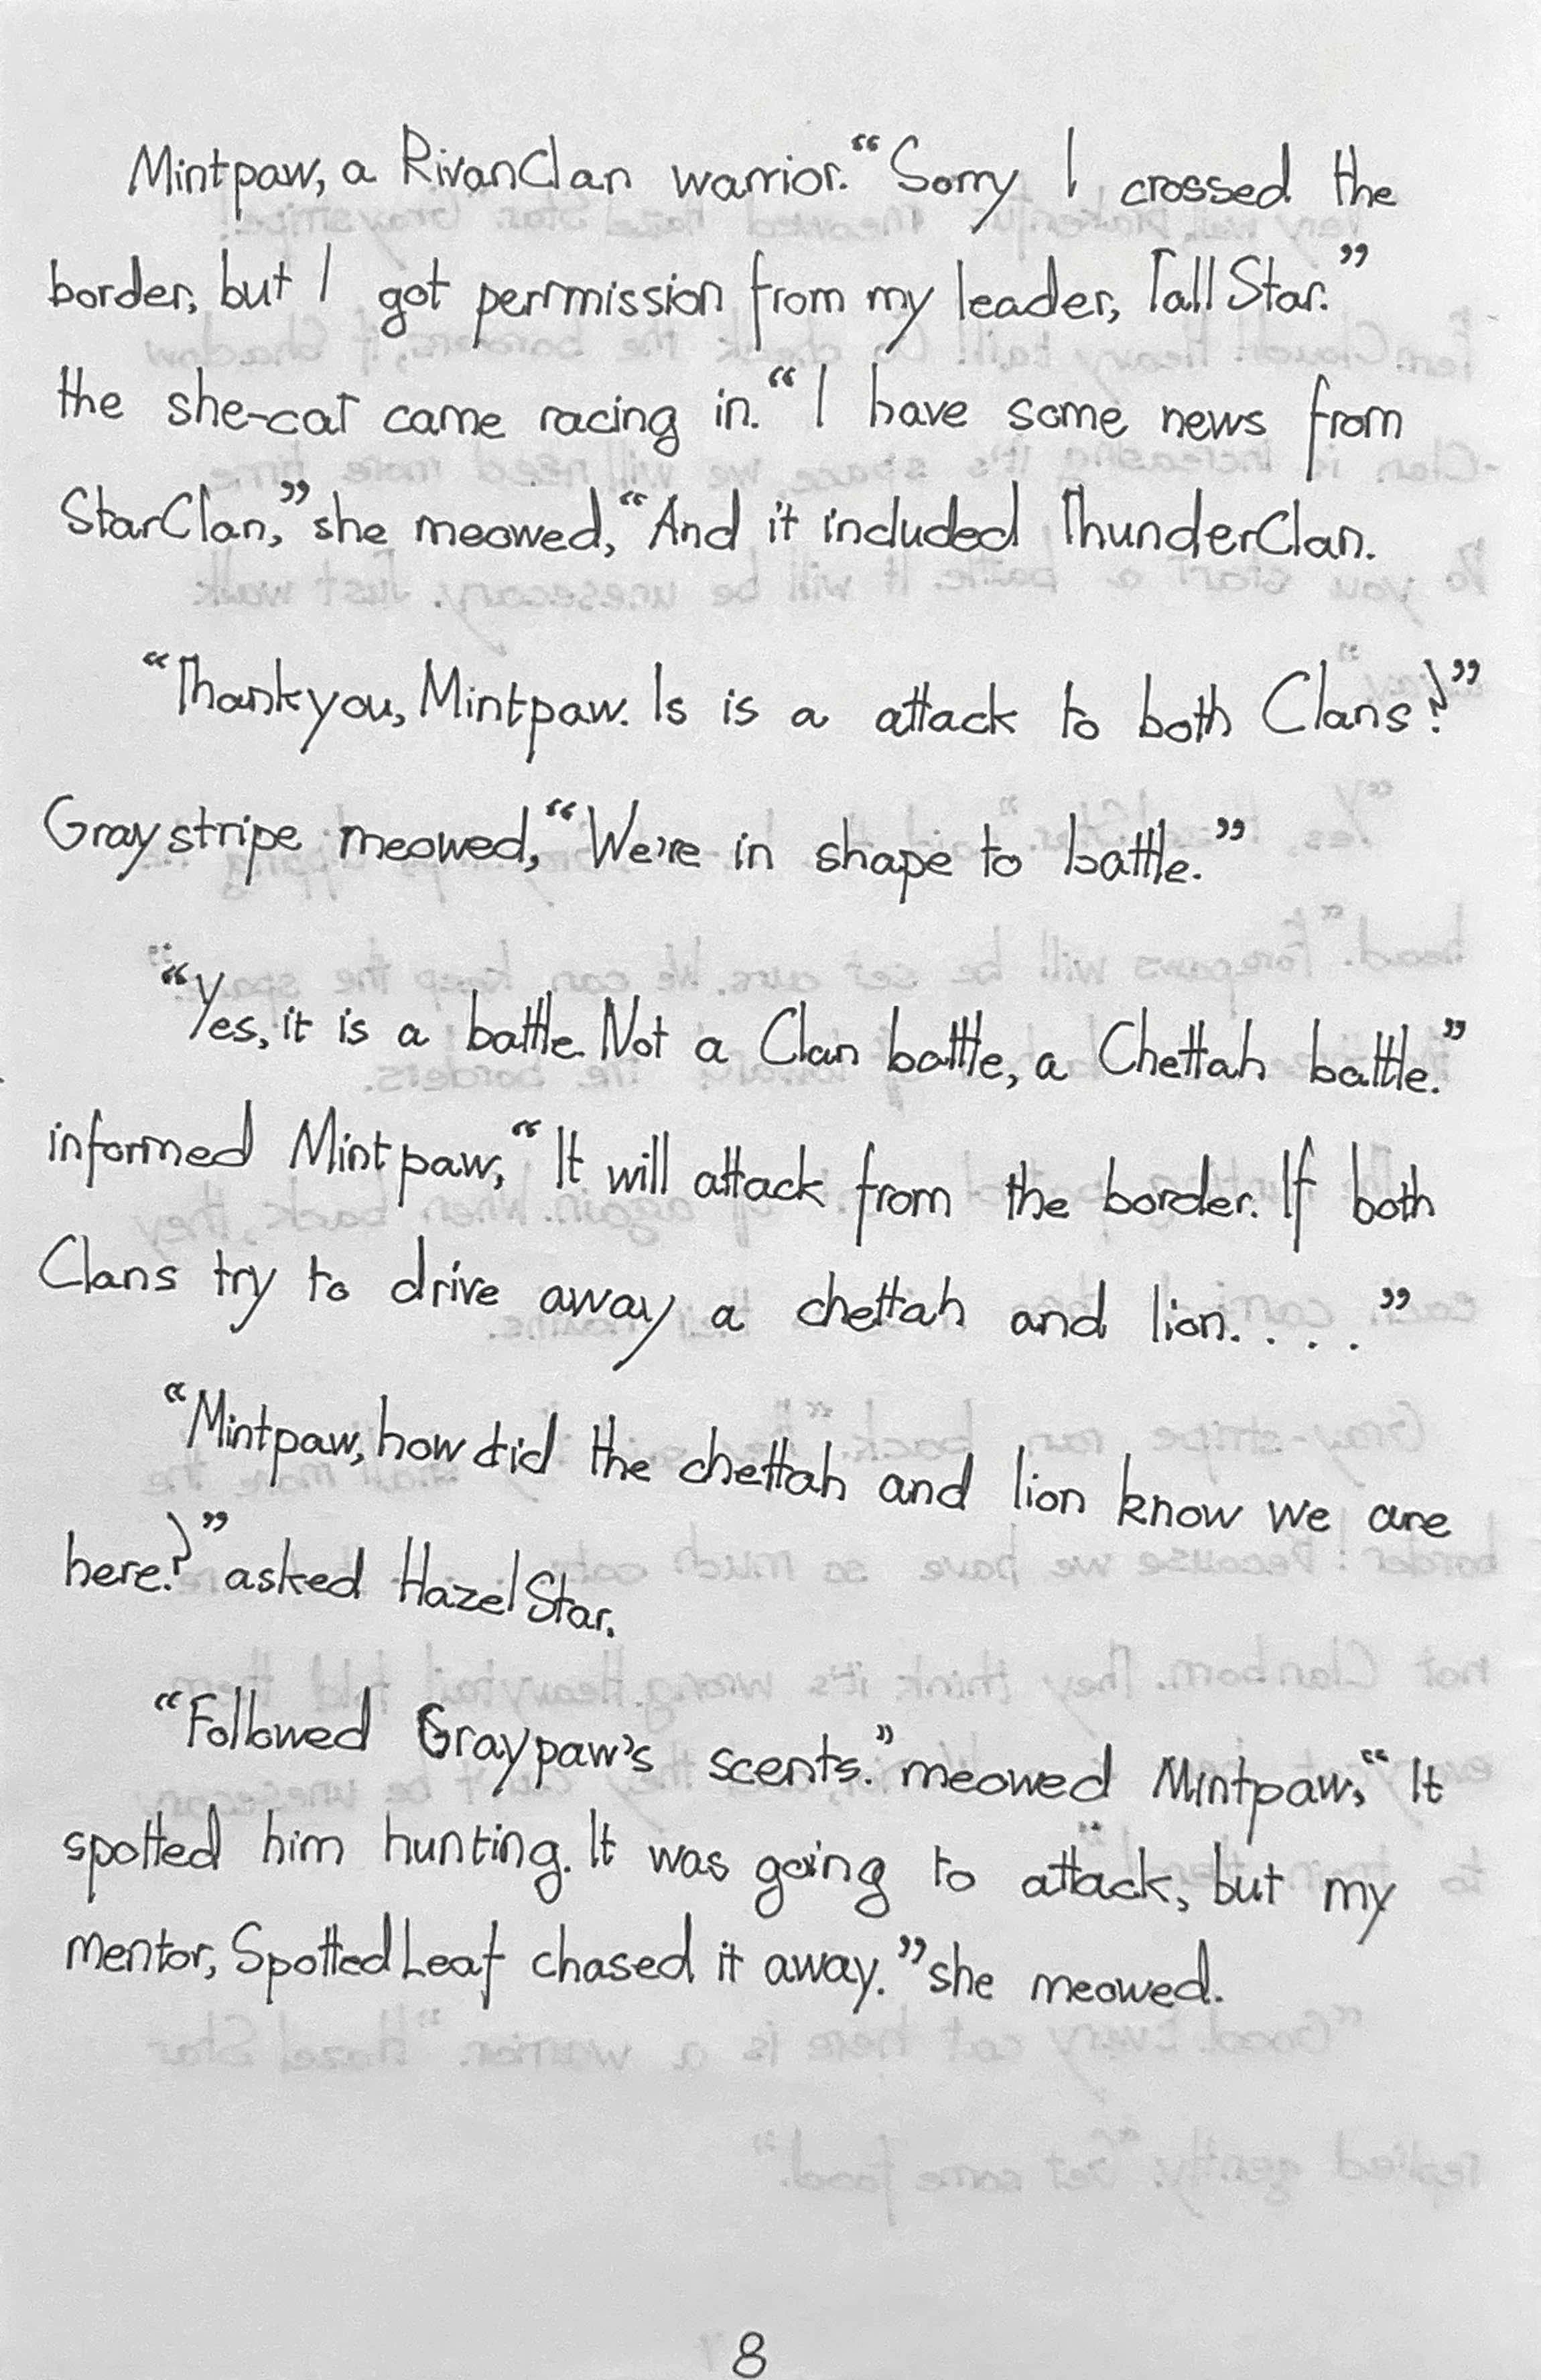 Mintpaw, a RivanClan warrior. “Sorry I crossed the
border, but I got permmission from my leader, Tall Star.”
the she-cat came racing in. “I have some news from
StarClan,” she meowed, “And it included ThunderClan.
“Thank you, Mintpaw. Is is a attack to both Clans?”
Graystripe meowed, “We're in shape to battle.”
“Yes, it is a battle. Not a Clan battle, a Chettah battle.”
informed Mintpaw, “It will attack from the border. If both
Clans try to drive away a chettah and lion. . . .”
“Mintpaw, how did the chettah and lion know we are
here?” asked Hazel Star.
“Followed Graypaw's scents.” meowed Mintpaw, “It
spotted him hunting. It was going to attack, but my
mentor, Spotted Leaf chased it away.” she meowed.
8